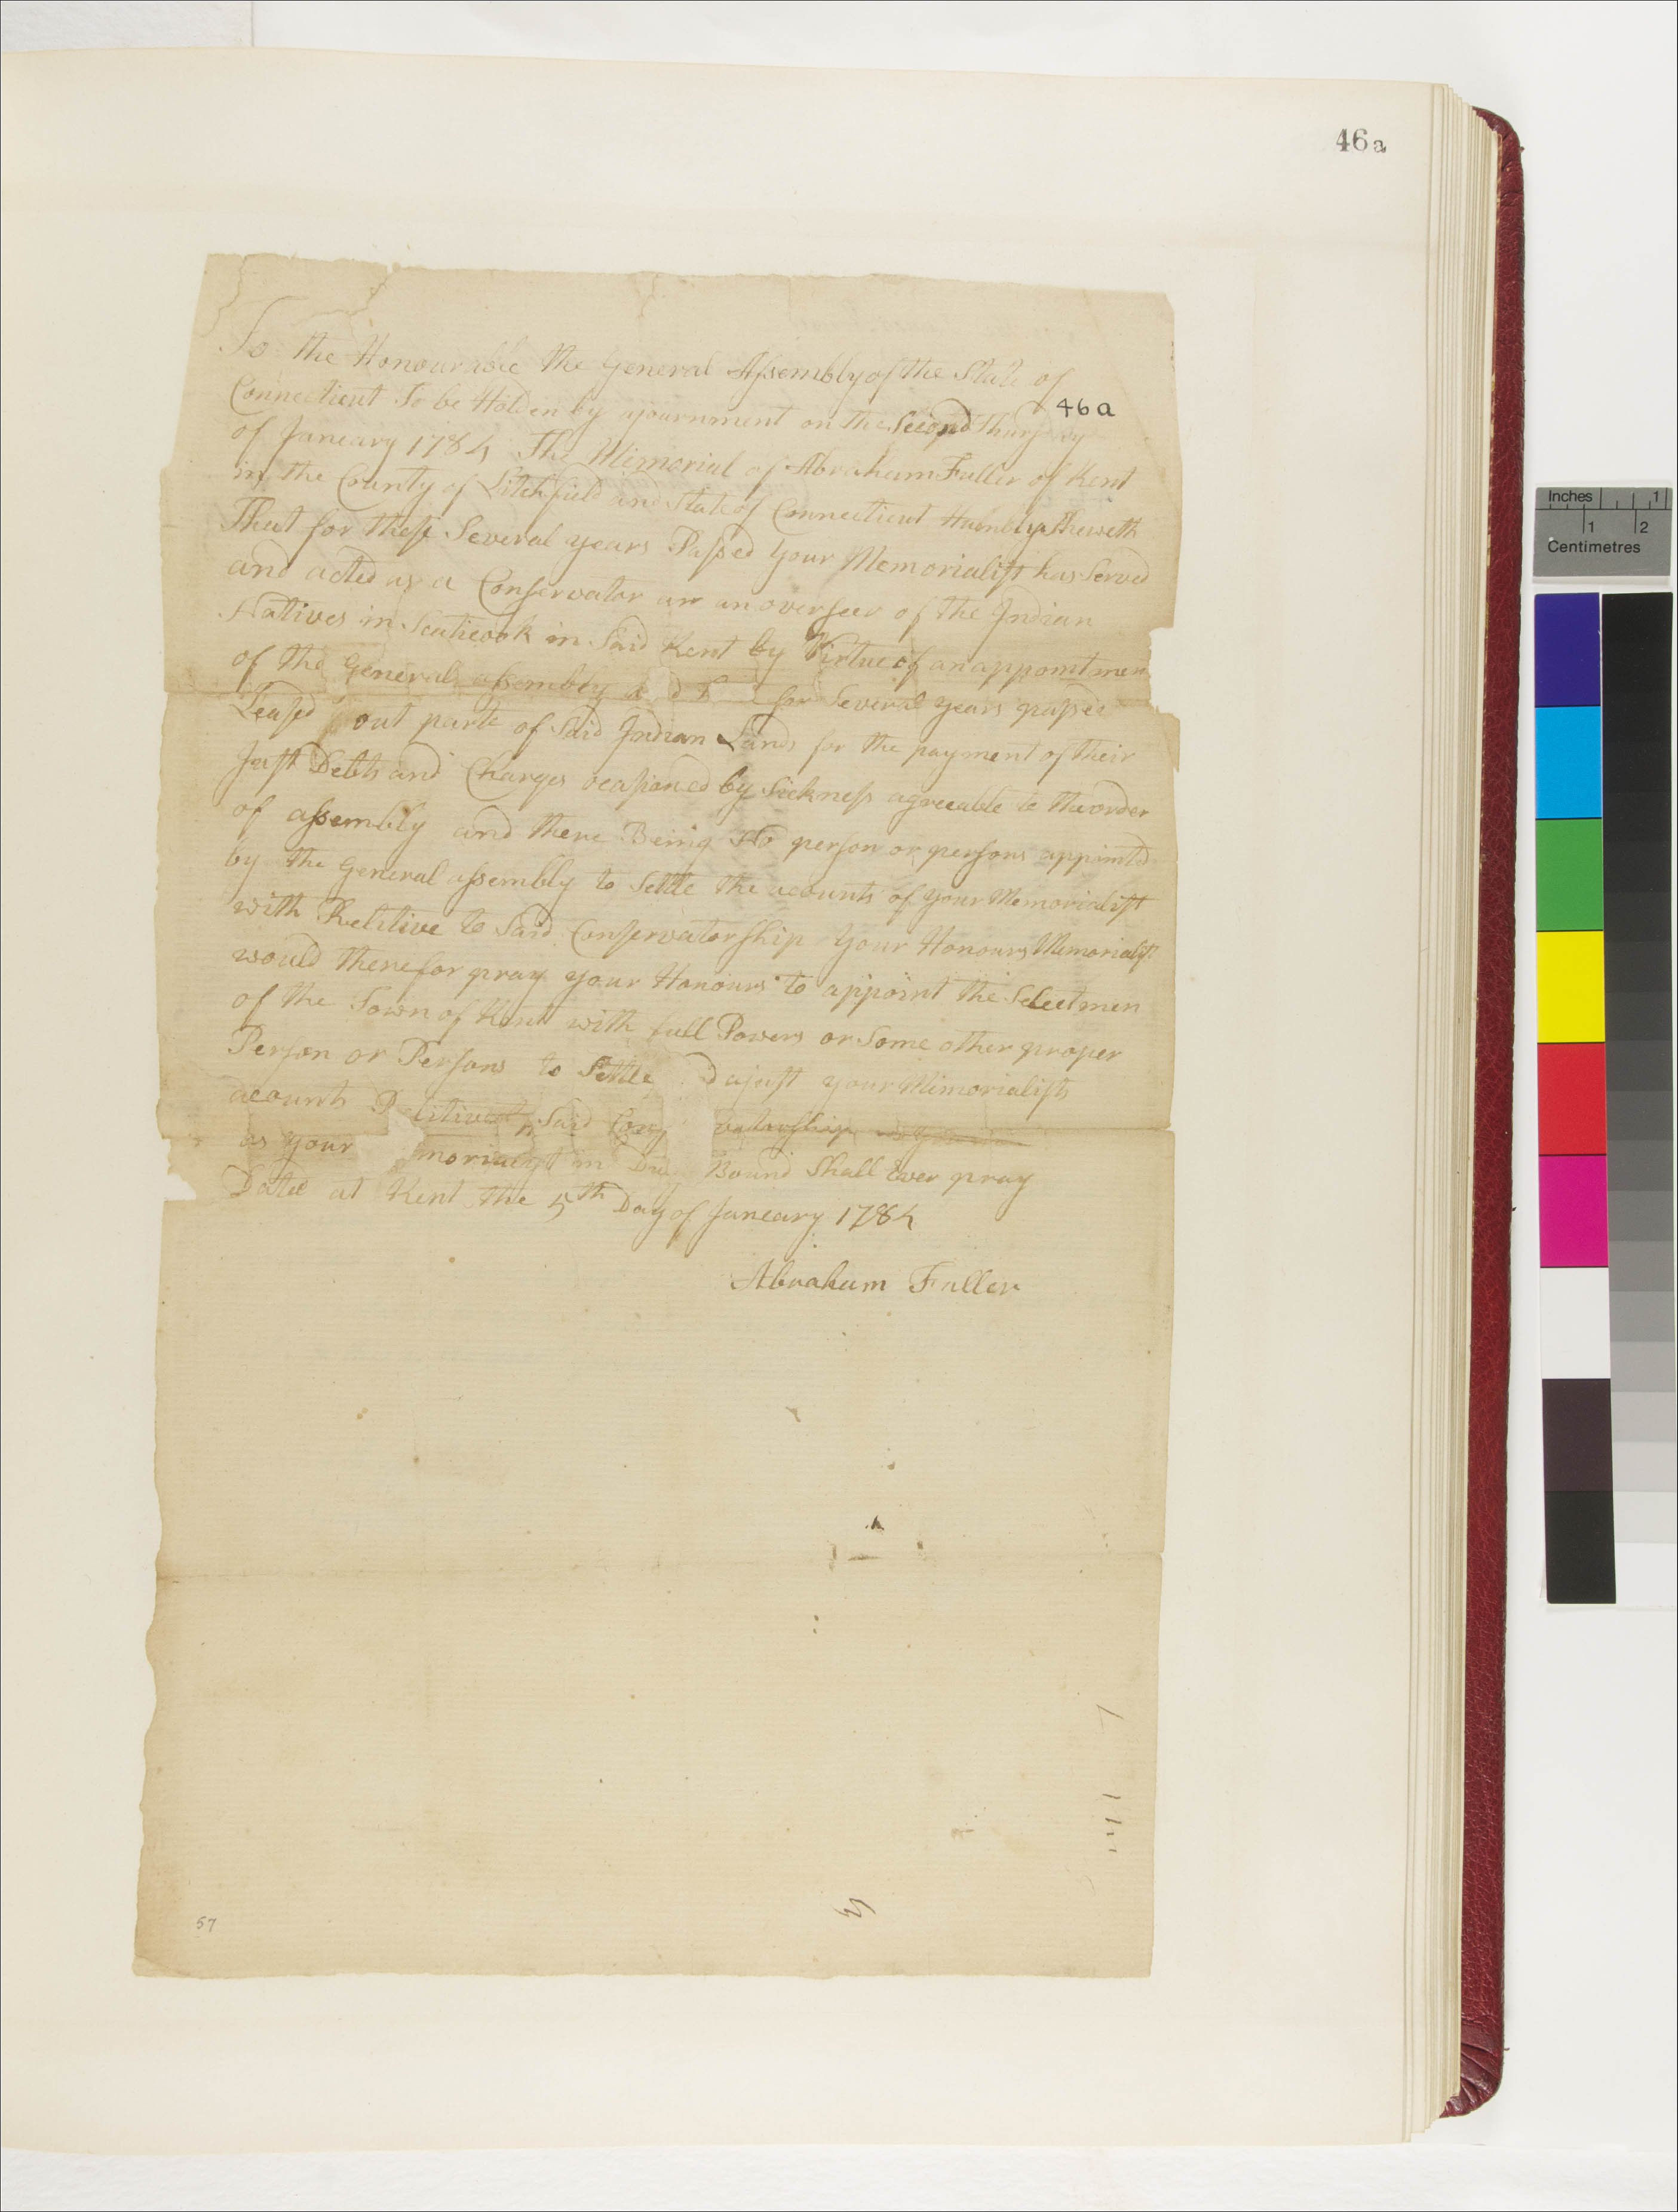 46a
To the Honourable the General Assembly of the State of
Connecticut To be Holden by ajournment on the Second Thursday
46a
of Janeary 1784 The Memorial of Abraham Fuller of Kent
in the County of Litchfield and State of Connecticut Humbly Sheweth
That for these Several years Passed your Memorialist has Served
and acted as a Conservator an overseer of the Indian
Natives in Scaticook in Said Kent by Virtue of an appointmen
of the General assembly for Several years passed
Leased out parte of Said Indian Lands for the payment of their
Just Debts and Charges ocasioned by Sickness agreeable to the order
of assembly and there Being No person or persons appointed
by the General assembly to Settle the acounts of your Memorialist
with Relitive to Said Conservatorship your Honours Memorialist
would therefor pray your Honours to appoint the Selectmen
of the Town of Kent with full Powers or Some other proper
Person or Persons to Settle d ajust your Memorialists
acounts litive to Said Con vatorship
as your morialist in Du Bound Shall Ever pray
Dated at Kent the 5th Day of Janeary 1784
Abraham Fuller
57
Inches 1
1 2
Centimetres